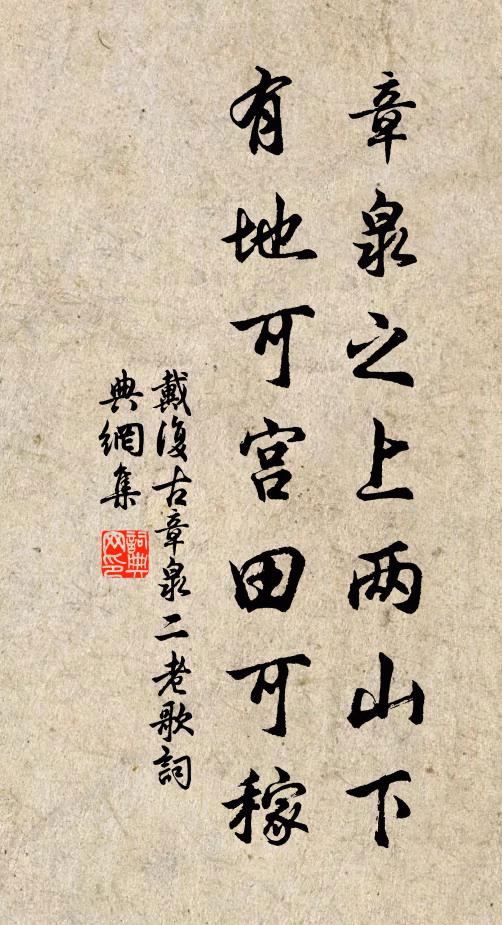 章泉之上两山下
有地可宫田可稼
戴復古章泉二老歌詞
典網集
詞典网印